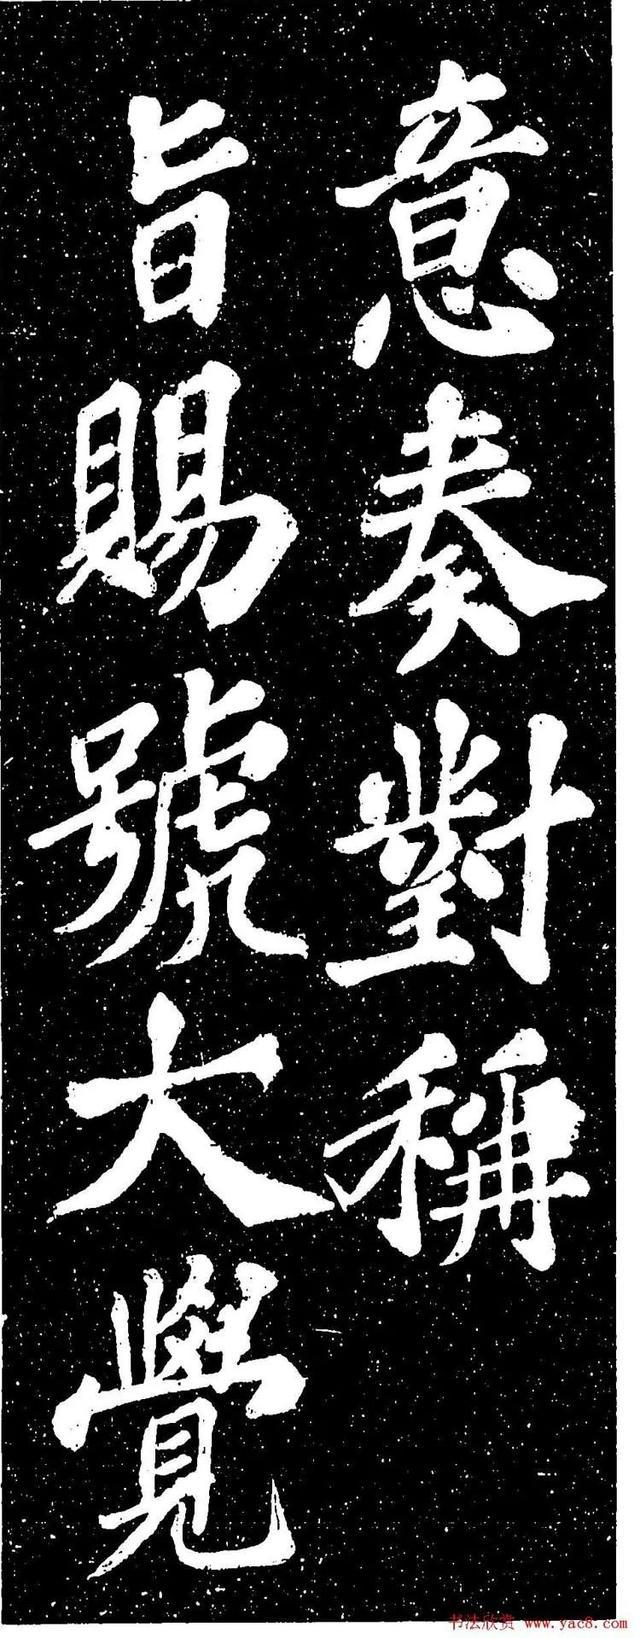 意奏對稱
旨賜號大覺
书法欣赏 www.yac8.com